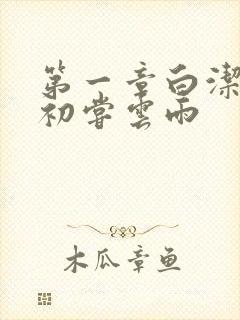 第一章白潔
初嘗雲雨
木瓜章鱼